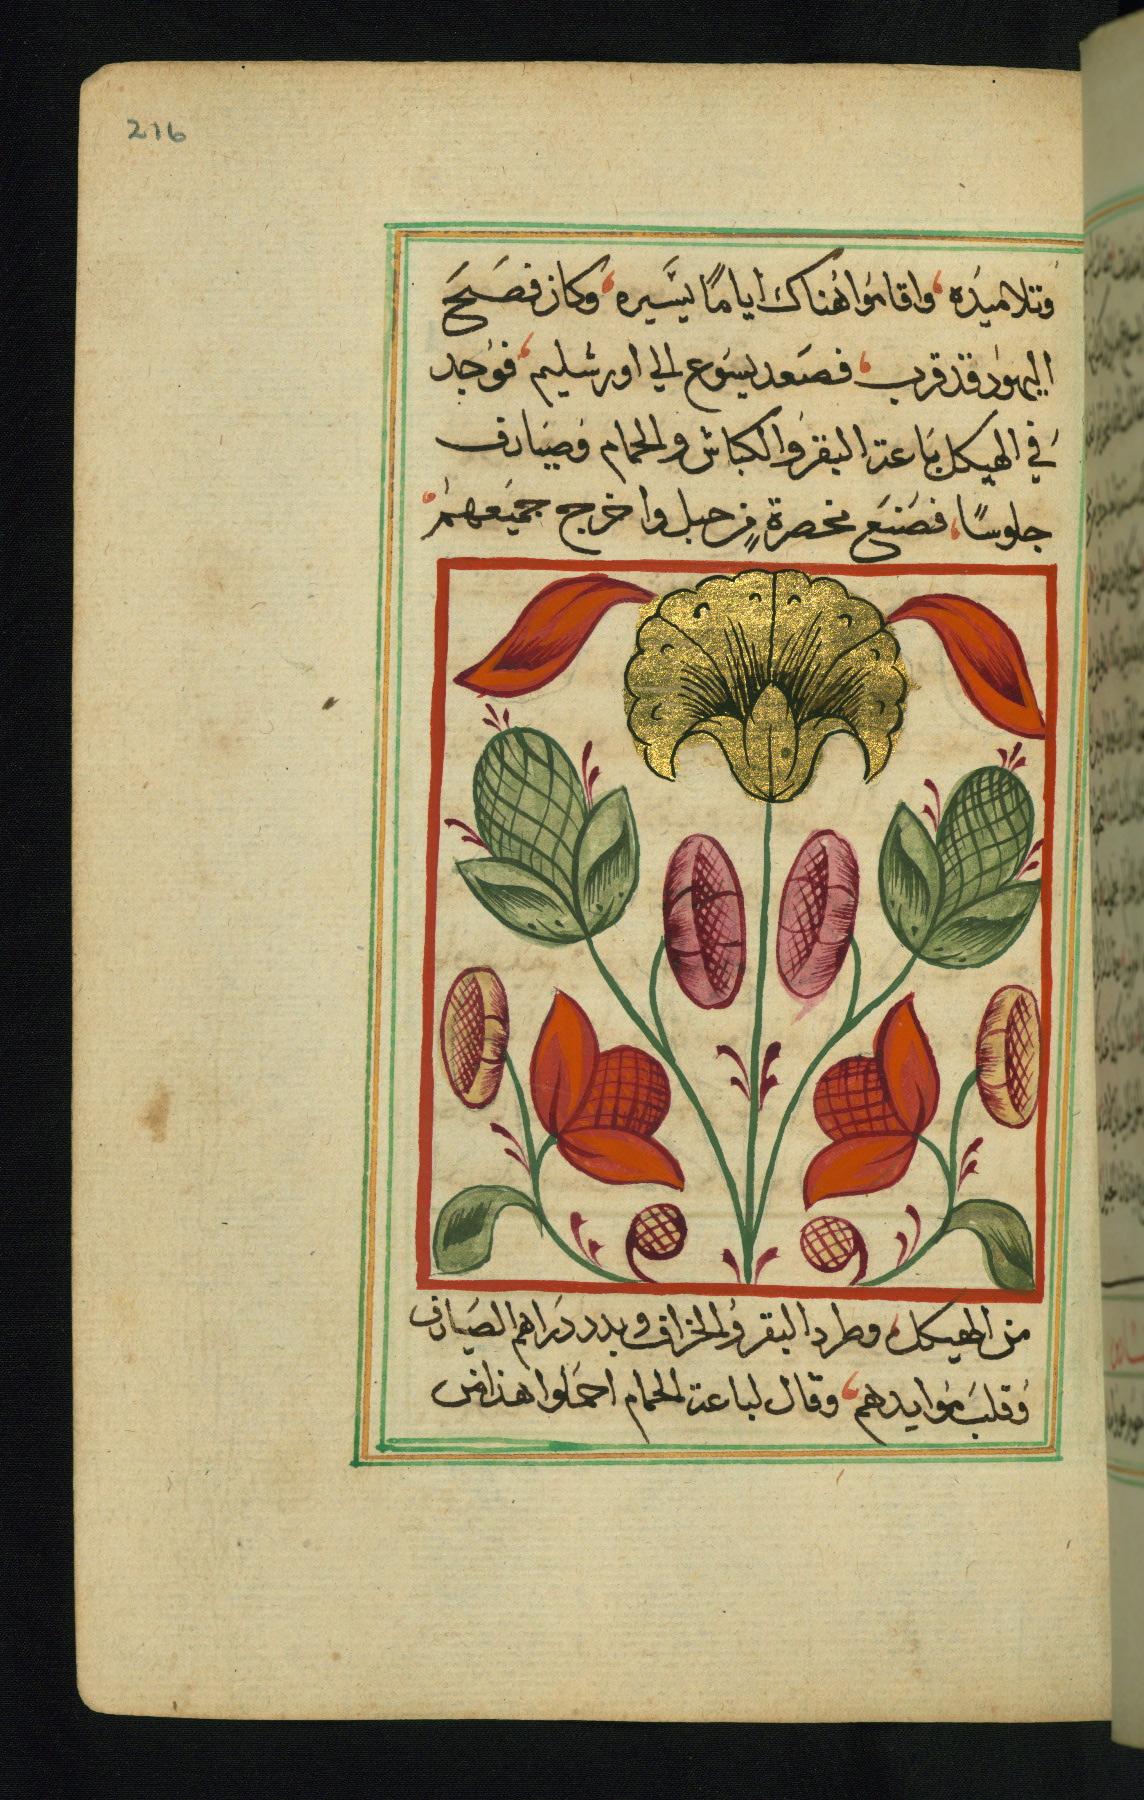 216
وتلاميذه، واقاموا هناك اياما يسيره، وكان فصح
اليهود قد قرب، فصعد يسوع الي اورشليم، فوجد
في الهيكل باعة البقر والكباش والحمام وصيارف
جلوسًا، فصنع مخصرة من حبل واخرج جميعهم
من الهيكل، وطرد البقر والخراف وبدد دراهم الصيارف
وقلب موايدهم، وقال لباعة الحمام احملوا هذا من